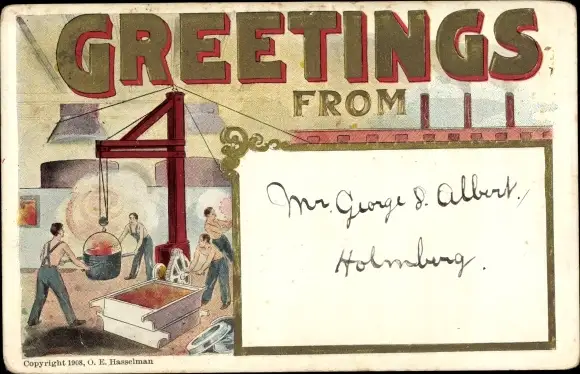 GREETINGS
FROM
Mr. George S. Albert.
Holmberg.
Copyright 1908, O. E. Hasselman